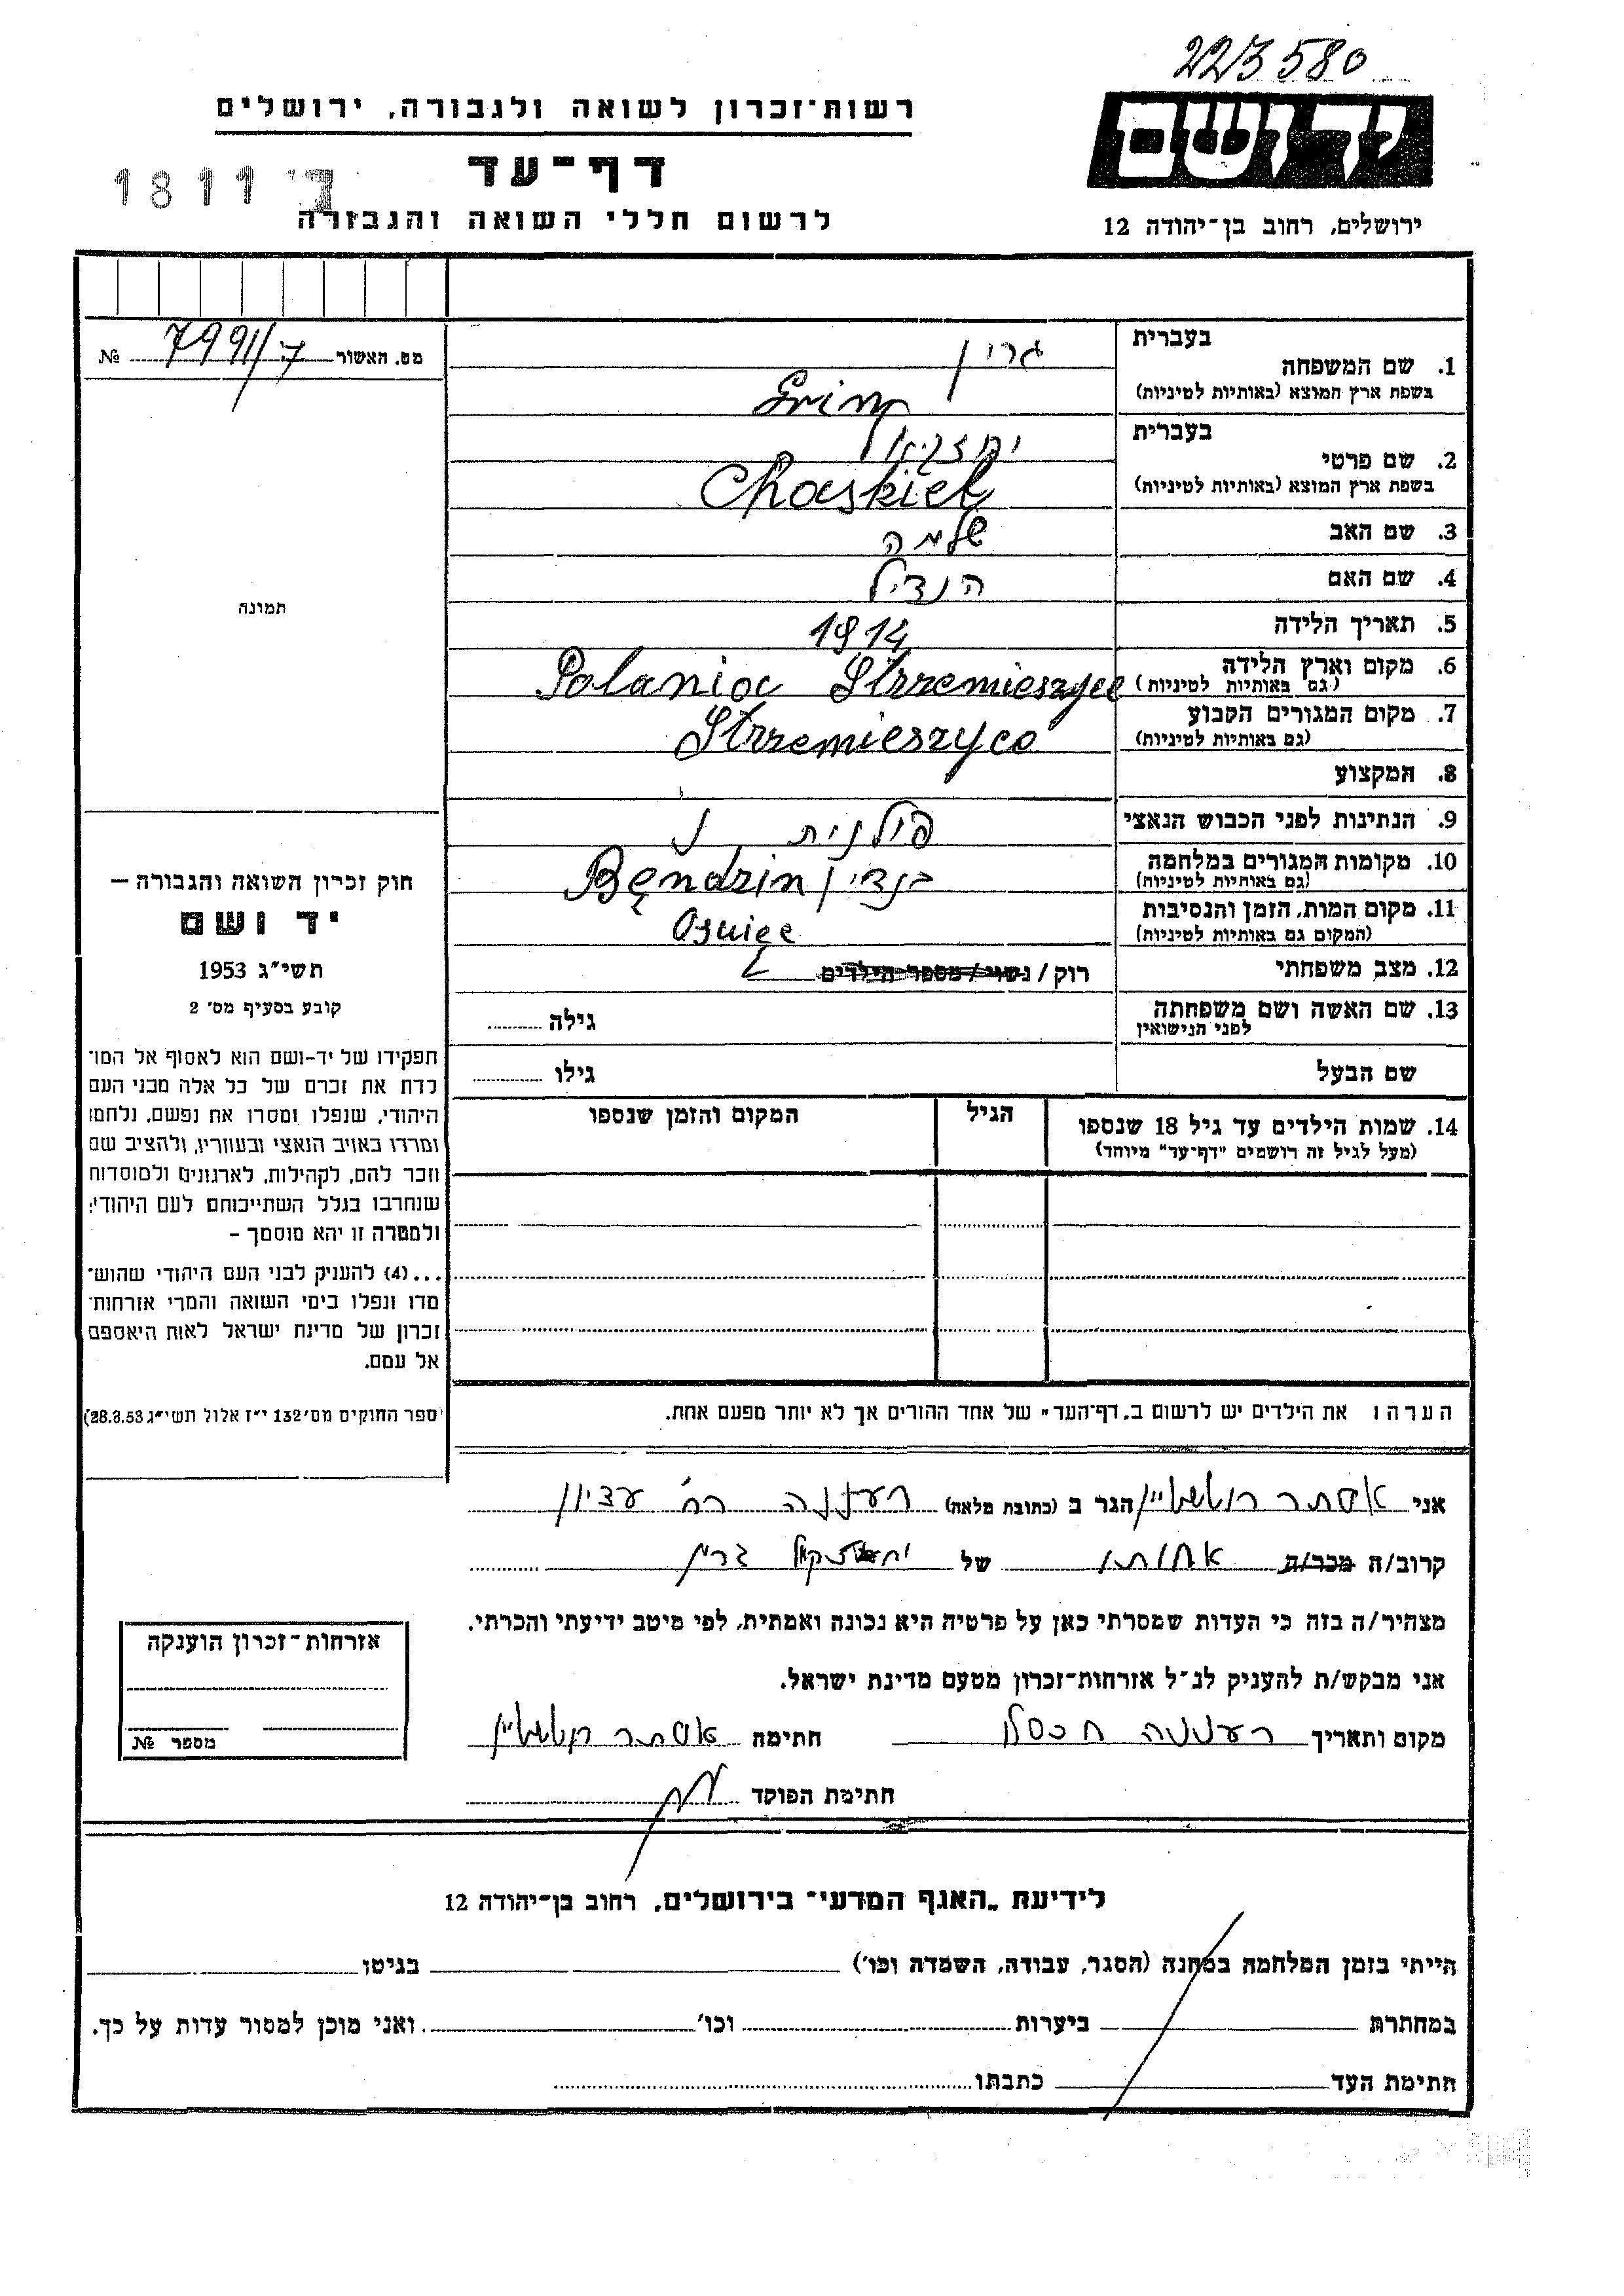 223580
רשות־זכרון לשואה ולגבורה, ירושלים
יד ושם
דף־עד
1811 ד'
לרשום חללי השואה והגבורה
ירושלים, רחוב בן־יהודה 12
מס. האשור 7991/ד №
1. שם המשפחה
בעברית גרין
בשפת ארץ המוצא (באותיות לטיניות) Grin
2. שם פרטי
בעברית יחזקאל
בשפת ארץ המוצא (באותיות לטיניות) Chaskiel
3. שם האב שלמה
4. שם האם הנדיל
5. תאריך הלידה 1914
6. מקום וארץ הלידה Polanioc Strzemieszyce
(גם באותיות לטיניות)
7. מקום המגורים הקבוע Strzemieszyce
(גם באותיות לטיניות)
8. המקצוע
9. הנתינות לפני הכבוש הנאצי פולנית
10. מקומות המגורים במלחמה בנדין Bęndzin
(גם באותיות לטיניות)
11. מקום המות, הזמן והנסיבות
(המקום גם באותיות לטיניות)
12. מצב משפחתי רוק / נשוי / מספר הילדים
13. שם האשה ושם משפחתה גילה
לפני הנישואין
שם הבעל גילו
14. שמות הילדים עד גיל 18 שנספו הגיל המקום והזמן שנספו
(מעל לגיל זה רושמים "דף־עד" מיוחד)
תמונה
חוק זכרון השואה והגבורה —
יד ושם
תשי"ג 1953
קובע בסעיף מס' 2
תפקידו של יד-ושם הוא לאסוף אל המו־
לדת את זכרם של כל אלה מבני העם
היהודי, שנפלו ומסרו את נפשם, נלחמו
ומרדו באויב הנאצי ובעוזריו, ולהציב שם
וזכר להם, לקהילות, לארגונים ולמוסדות
שנחרבו בגלל השתייכותם לעם היהודי;
ולמטרה זו יהא מוסמך –
...(4) להעניק לבני העם היהודי שהוש־
מדו ונפלו בימי השואה והמרי אזרחות־
זכרון של מדינת ישראל לאות היאספם
אל עמם.
(ספר החוקים מס' 132 י"ז אלול תשי"ג 28.8.53)
הערה: את הילדים יש לרשום ב„דף־העד" של אחד ההורים אך לא יותר מפעם אחת.
אני אסתר רוטשטיין הגר ב (כתובת מלאה) רעננה רח' עציון
קרוב/ה מכר/ה אחותו של יחזקאל גרין
מצהיר/ה בזה כי העדות שמסרתי כאן על פרטיה היא נכונה ואמתית, לפי מיטב ידיעתי והכרתי.
אני מבקש/ת להעניק לנ"ל אזרחות־זכרון מטעם מדינת ישראל.
מקום ותאריך רעננה חתימה אסתר רוטשטיין
חתימת הפוקד
אזרחות־זכרון הוענקה
מספר №
לידיעת „האגף המדעי" בירושלים, רחוב בן־יהודה 12
הייתי בזמן המלחמה במחנה (הסגר, עבודה, השמדה וכו') בגיטו
במחתרת ביערות וכו' ואני מוכן למסור עדות על כך.
חתימת העד כתבתו